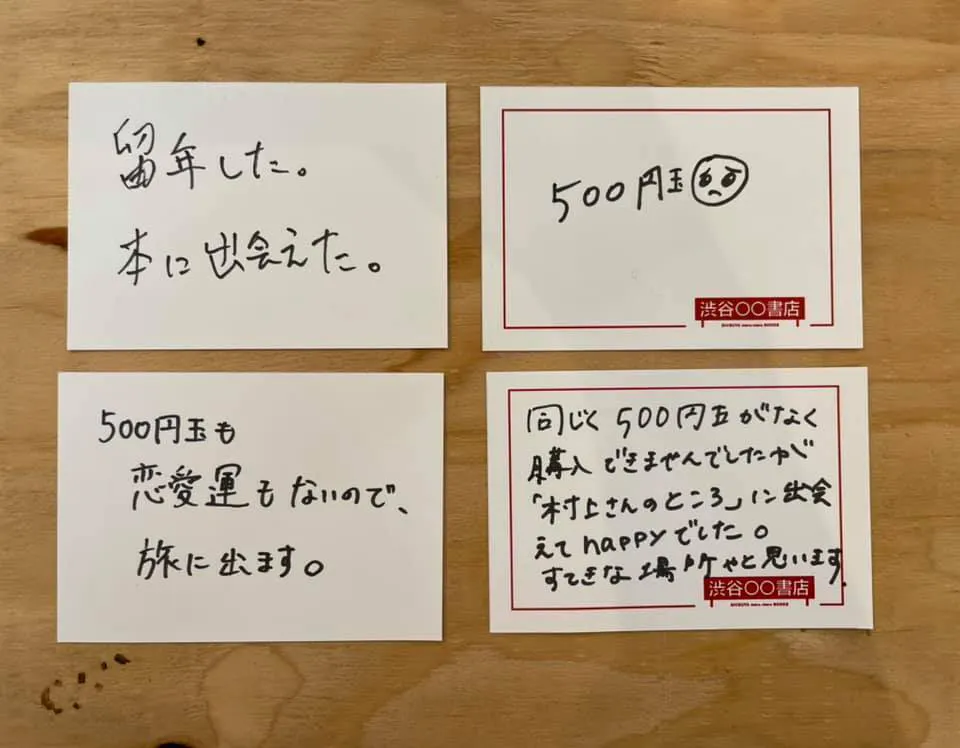 留年した。
本に出会えた。
500円玉
渋谷〇〇書店
SHIBUYA maru-maru BOOKS
500円玉も
恋愛運もないので、
旅に出ます。
同じく500円玉がなく
購入できませんでしたが
「村上さんのところ」に出会
えてhappyでした。
すてきな場所やと思います。
渋谷〇〇書店
SHIBUYA maru-maru BOOKS